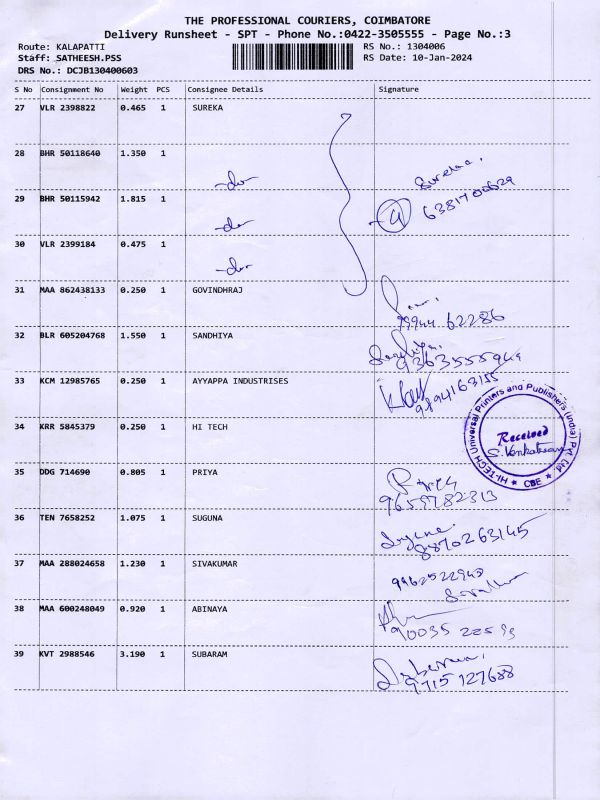 THE PROFESSIONAL COURIERS, COIMBATORE
Delivery Runsheet - SPT - Phone No.:0422-3505555 - Page No.:3
Route: KALAPATTI RS No.: 1304006
Staff: SATHEESH.PSS RS Date: 10-Jan-2024
DRS No.: DCJB130400603
S No Consignment No Weight PCS Consignee Details Signature
27 VLR 2398822 0.465 1 SUREKA
28 BHR 50118640 1.350 1
-do-
Surekaa.
29 BHR 50115942 1.815 1
6381700629
-do-
30 VLR 2399184 0.475 1
-do-
31 MAA 862438133 0.250 1 GOVINDHRAJ
99944 62286
32 BLR 605204768 1.550 1 SANDHIYA
9363555949
33 KCM 12985765 0.250 1 AYYAPPA INDUSTRISES
9894163155
34 KRR 5845379 0.250 1 HI TECH
HI-TECH Universal Printers and Publishers (India) Pvt. Ltd.
Received
S. Venkatesan
★ CBE ★
35 DDG 714690 0.805 1 PRIYA
Priya
9659782313
36 TEN 7658252 1.075 1 SUGUNA
Suguna
8870263145
37 MAA 288024658 1.230 1 SIVAKUMAR
9962522943
38 MAA 600248049 0.920 1 ABINAYA
90035 22593
39 KVT 2988546 3.190 1 SUBARAM
9715 127688